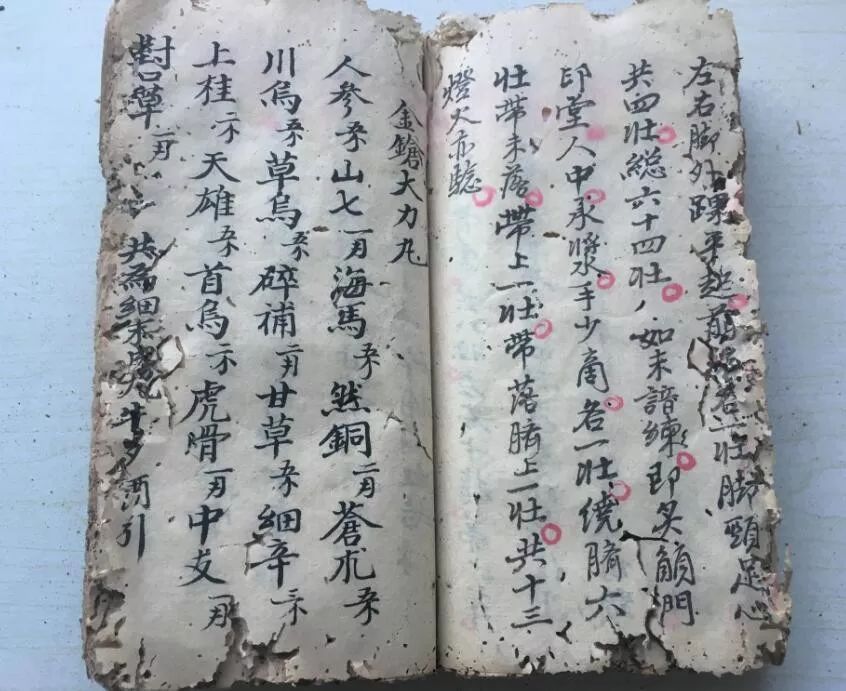 左右脚外踝平起前各一壮脚頸足心
共四壮総六十四壮如未諳練即炙顖門
印堂人中承漿手少商各一壮繞臍六
壮帶未落帶上一壮帶落臍上一壮共十三
燈火亦聽
金鎗大力丸
人參 山七 海馬 然銅 蒼朮
川烏 草烏 碎補 甘草 細辛
上桂 天雄 首烏 虎骨 中支
對口草 共為細末 酒引